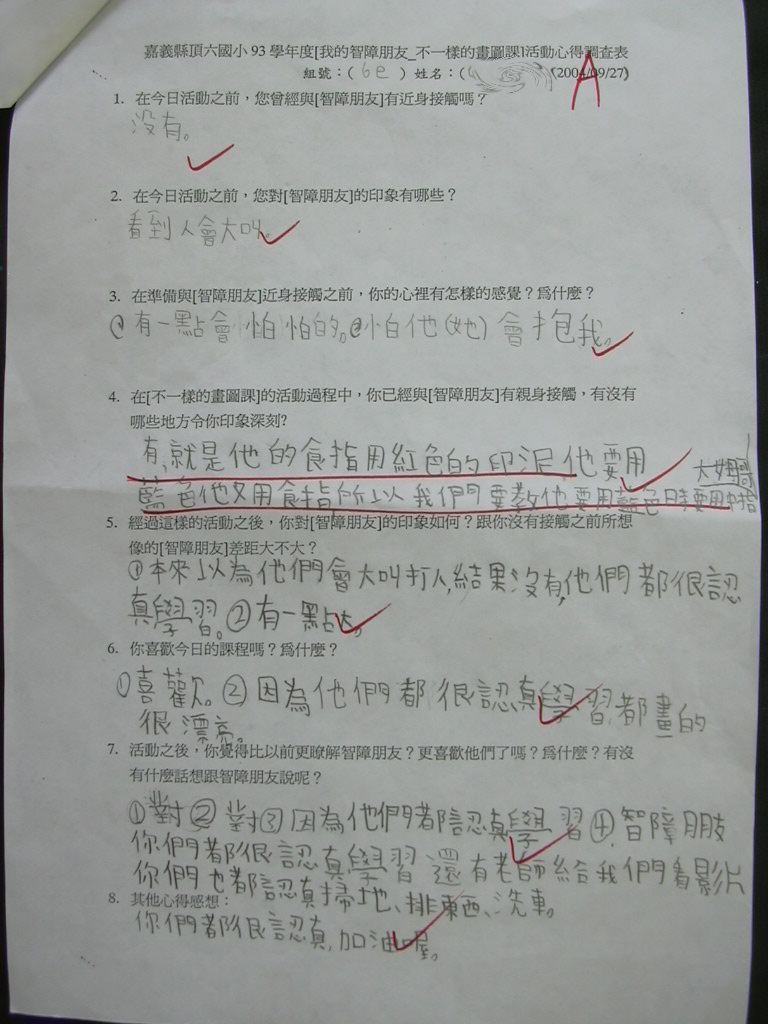 嘉義縣頂六國小 93 學年度[我的智障朋友_不一樣的畫圖課]活動心得調查表
組號：( 6e ) 姓名：( (2004/09/27)
A
1. 在今日活動之前，您曾經與[智障朋友]有近身接觸嗎？
沒有。
2. 在今日活動之前，您對[智障朋友]的印象有哪些？
看到人會大叫。
3. 在準備與[智障朋友]近身接觸之前，你的心裡有怎樣的感覺？爲什麼？
有一點會怕怕的。怕他(她)會抱我。
4. 在[不一樣的畫圖課]的活動過程中，你已經與[智障朋友]有親身接觸，有沒有
哪些地方令你印象深刻?
有,就是他的食指用紅色的印泥,他要用
藍色他又用食指所以我們要教他要用藍色時要用中指
5. 經過這樣的活動之後，你對[智障朋友]的印象如何？跟你沒有接觸之前所想
像的[智障朋友]差距大不大？
①本來以為他們會大叫打人,結果沒有,他們都很認
真學習。②有一點大。
6. 你喜歡今日的課程嗎？爲什麼？
①喜歡。②因為他們都很認真學習,都畫的
很漂亮。
7. 活動之後，你覺得比以前更瞭解智障朋友？更喜歡他們了嗎？爲什麼？有沒
有什麼話想跟智障朋友說呢？
①對②對③因為他們都認真學習④,智障朋友
你們都很認真學習還有老師給我們看影片
你們也都認真掃地、排東西、洗車。
8. 其他心得感想：
你們都很認真,加油喔。